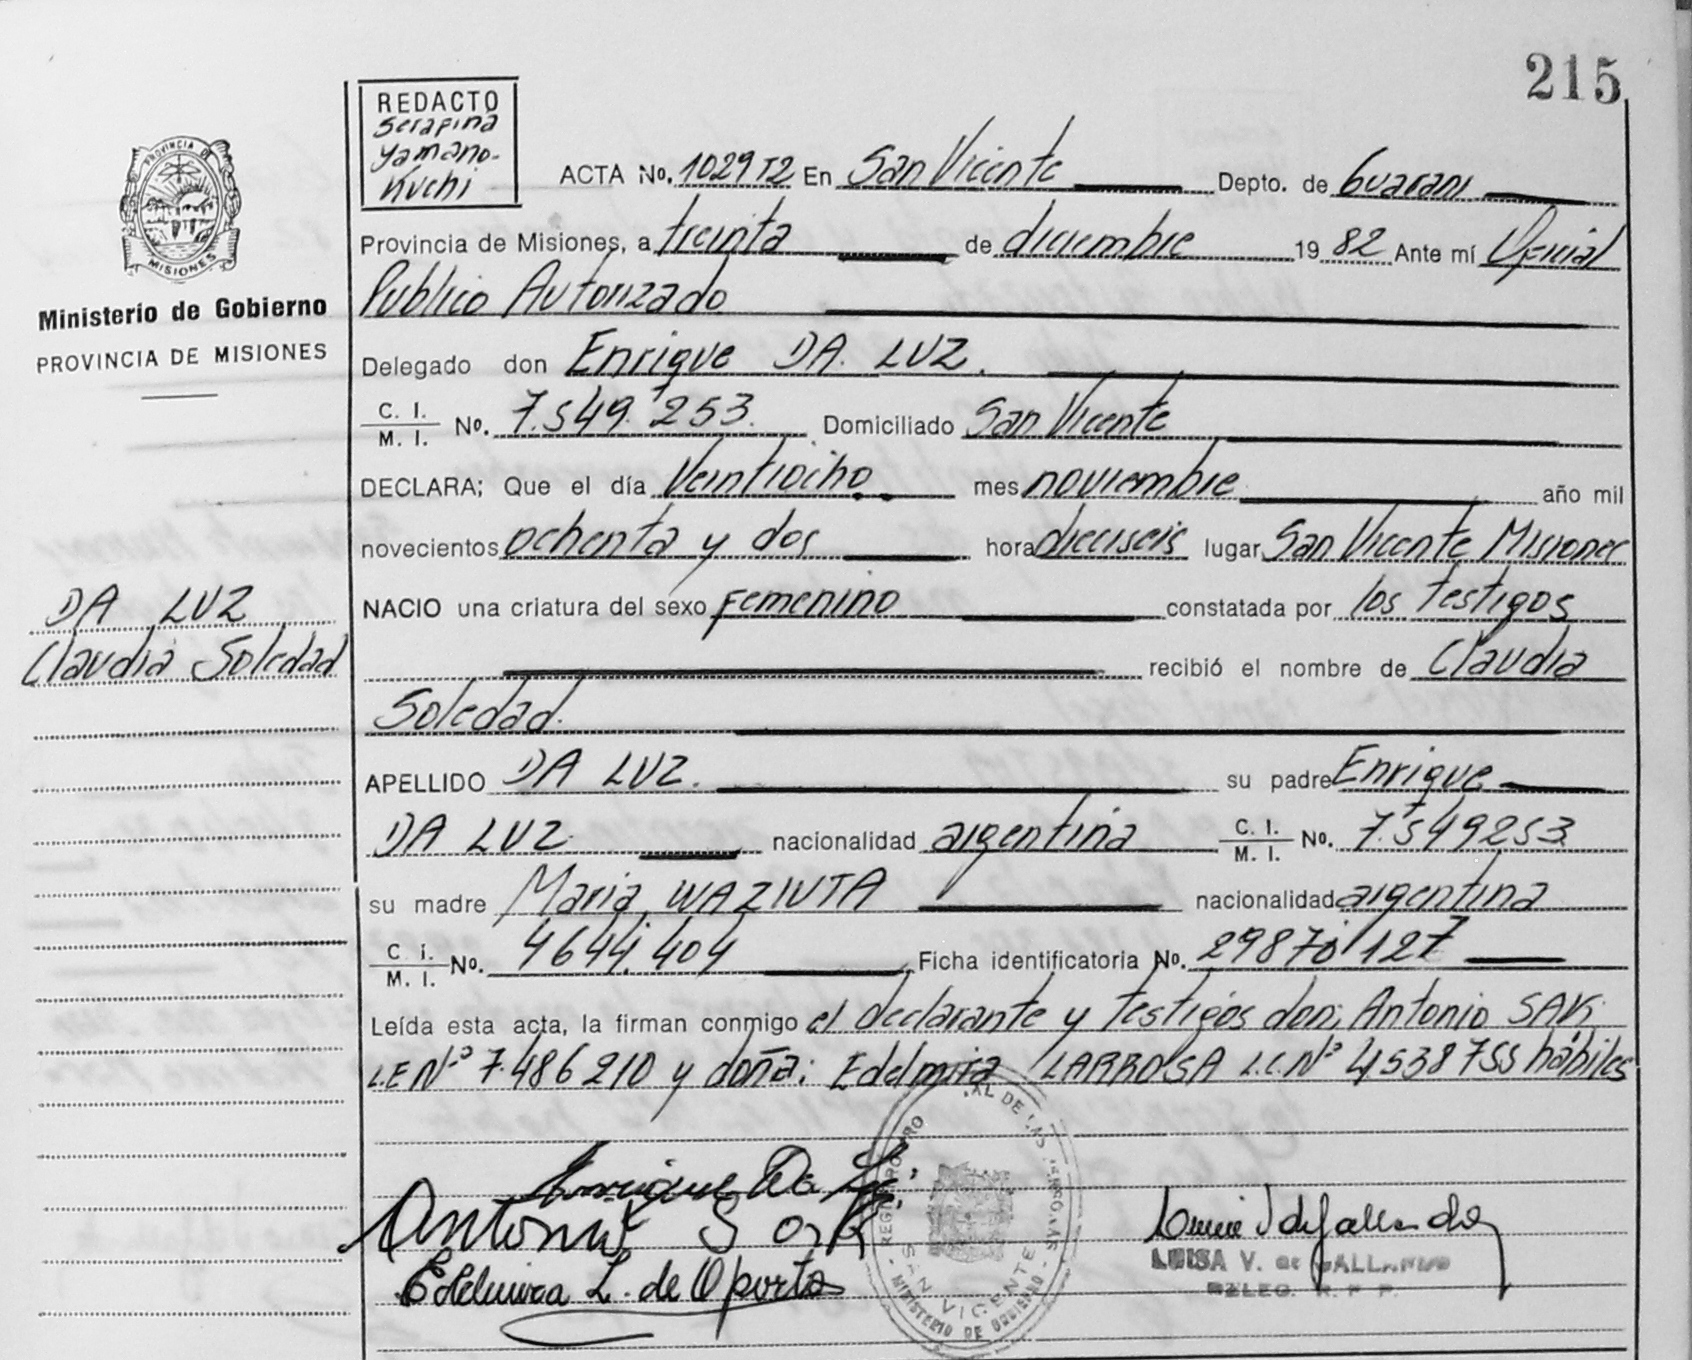 215
REDACTO
Serafina
Yamano-
Kuchi
ACTA No. 1029 T2 En San Vicente Depto. de Guarani
Provincia de Misiones, a treinta de diciembre 19 82 Ante mí Oficial
Publico Autorizado
PROVINCIA DE
MISIONES
Ministerio de Gobierno
PROVINCIA DE MISIONES
Delegado don Enrique DA LUZ.
C. I.
M. I. No. 7.549.253. Domiciliado San Vicente
DECLARA; Que el día Veintiocho mes noviembre año mil
novecientos ochenta y dos hora dieciseis lugar San Vicente Misiones
DA LUZ
Claudia Soledad
NACIO una criatura del sexo femenino constatada por los testigos
recibió el nombre de Claudia
Soledad.
APELLIDO DA LUZ. su padre Enrique
DA LUZ nacionalidad argentina C. I.
M. I. No. 7.549253
su madre Maria WAZIUTA nacionalidad argentina
C. I.
M. I. No. 4644.404 Ficha identificatoria No.
Leída esta acta, la firman conmigo el declarante y testigos don; Antonio
L.E Nº 7.486210 y doña: Edelmira LARROSA L.C. Nº 4538755 hábiles
Enrique Da
Antonio
Edelmira L. de Oporto
REGISTRO
AL DE LAS PERSONAS
SAN VICENTE
MINISTERIO DE GOBIERNO
LUISA V. de GALLARDO
DELEG. R. P. P.